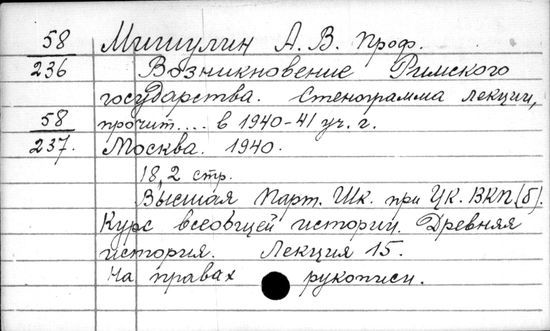 58 Мишулин А. В. проф.
236 Возникновение Римского
государства. Стенограмма лекции,
58 прочит.... в 1940-41 уч. г.
237. Москва. 1940.
18,2 стр.
Высшая Парт. Шк. при ЦК. ВКП(б).
Курс всеобщей истории. Древняя
история. Лекция 15.
На правах рукописи.